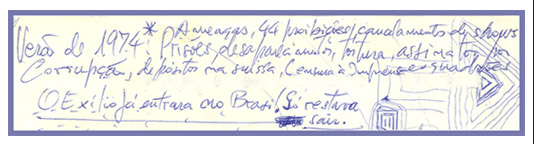 Verão de 1974.* Ameaças, 44 proibições, cancelamento de shows
Prisões, desaparecimentos, tortura, assinatos por
Corrupção, depósitos na suissa, Censura à Imprensa esquadrões
O Exílio já entrara no Brasil. Só restava
sair.